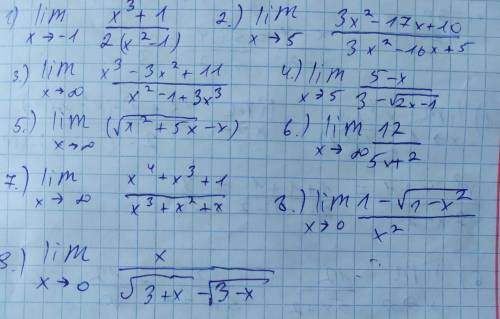 1) lim x→-1 (x³+1)/(2(x²-1))
2.) lim x→5 (3x²-17x+10)/(3x²-16x+5)
3.) lim x→∞ (x³-3x²+11)/(x²-1+3x³)
4.) lim x→5 (5-x)/(3-√(2x-1))
5.) lim x→∞ (√(x²+5x)-x)
6.) lim x→∞ 12/(5x+2)
7.) lim x→∞ (x⁴+x³+1)/(x³+x²+x)
8.) lim x→0 (1-√(1-x²))/x²
9.) lim x→0 x/(√(3+x)-√(3-x))